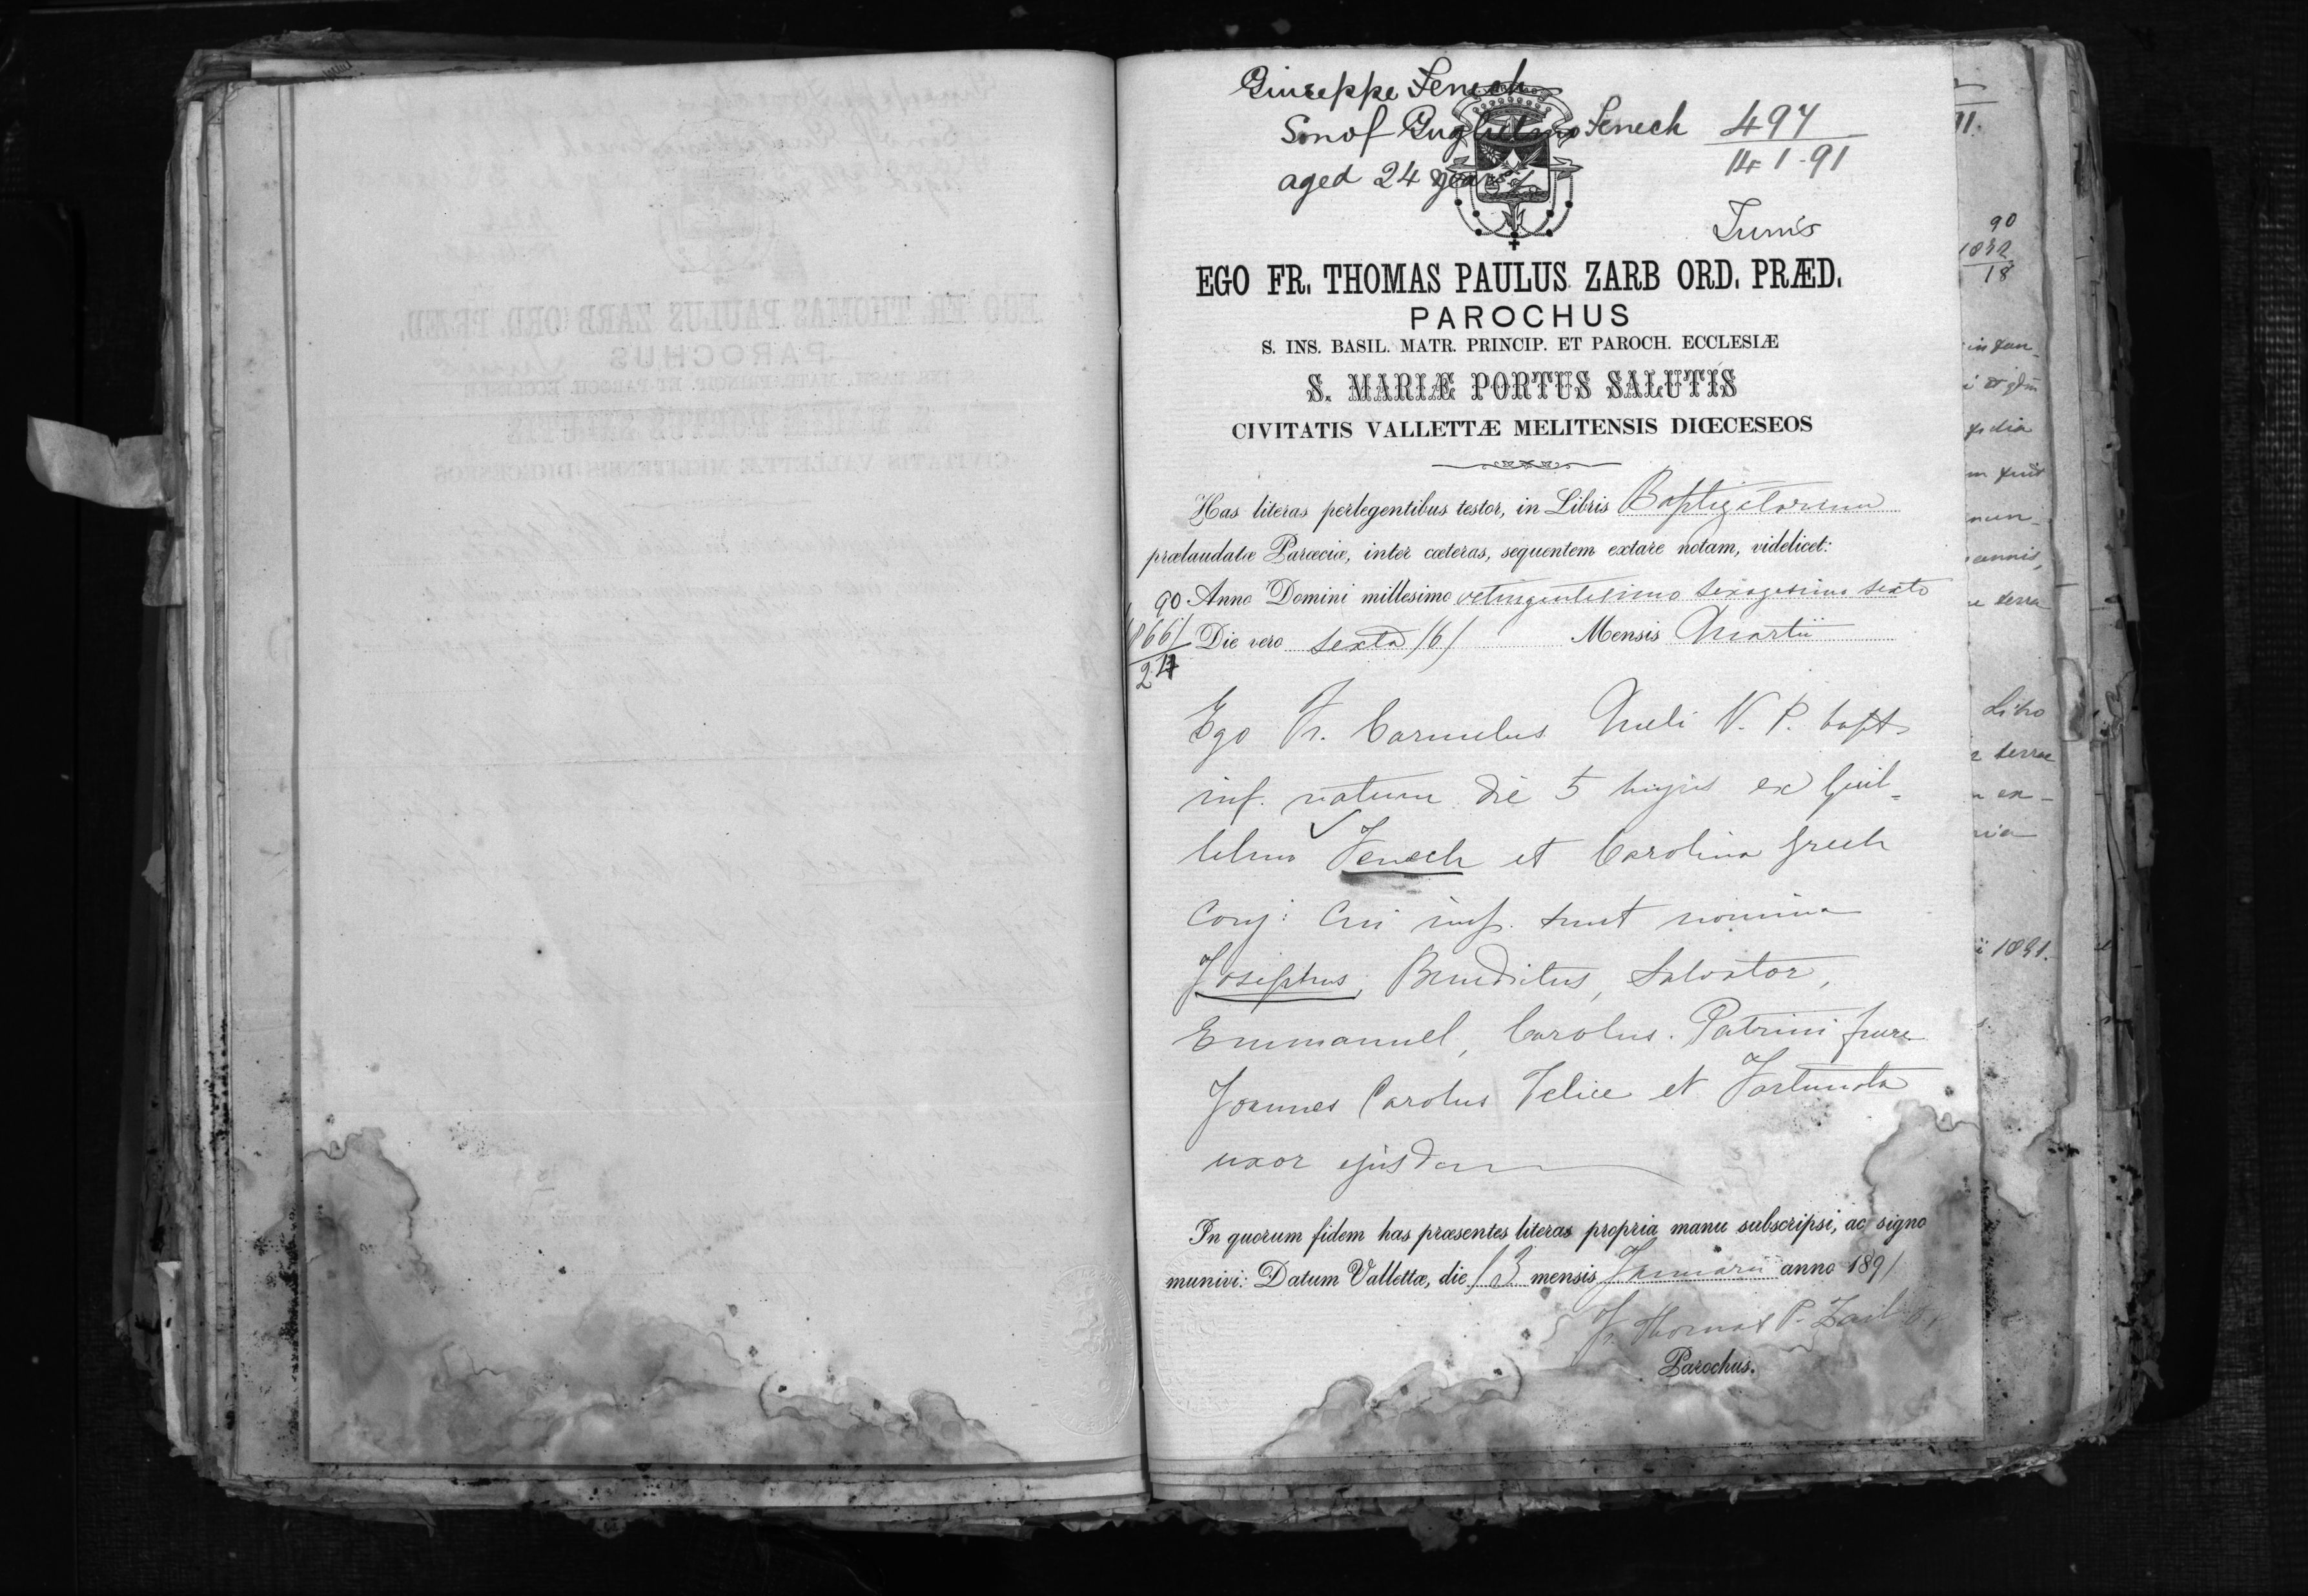 Giuseppe Senech
Son of Guglielmo Senech 497
aged 24 years 14-1-91
Tunis
EGO FR. THOMAS PAULUS ZARB ORD. PRÆD.
PAROCHUS
S. INS. BASIL. MATR. PRINCIP. ET PAROCH. ECCLESIÆ
S. MARIÆ PORTUS SALUTIS
CIVITATIS VALLETTÆ MELITENSIS DIŒCESEOS
Has literas perlegentibus testor, in Libris Baptizatorum
prælaudatæ Paræciæ, inter cæteras, sequentem extare notam, videlicet:
90 Anno Domini millesimo octingentesimo sexagesimo sexto
1866/ Die vero sexta /6/ Mensis Martii
24
Ego Fr. Carmelus Meli V. P. bapt.
inf. natum die 5 hujus ex Guil-
lelmo Fenech et Carolina Grech
conj: Cui imp. sunt nomina
Josephus, Benedictus, Salvator,
Emmanuel, Carolus. Patrini fuere
Joannes Carolus Felice et Fortunata
uxor ejusdem
In quorum fidem has præsentes literas propria manu subscripsi, ac signo
munivi: Datum Vallettæ, die 13 mensis Januarii anno 1891
Fr. Thomas P. Zarb
Parochus.
11.
90
1872
18
infan-
fuit
nun-
annis,
terra
Libro
terrae
ex-
1891.